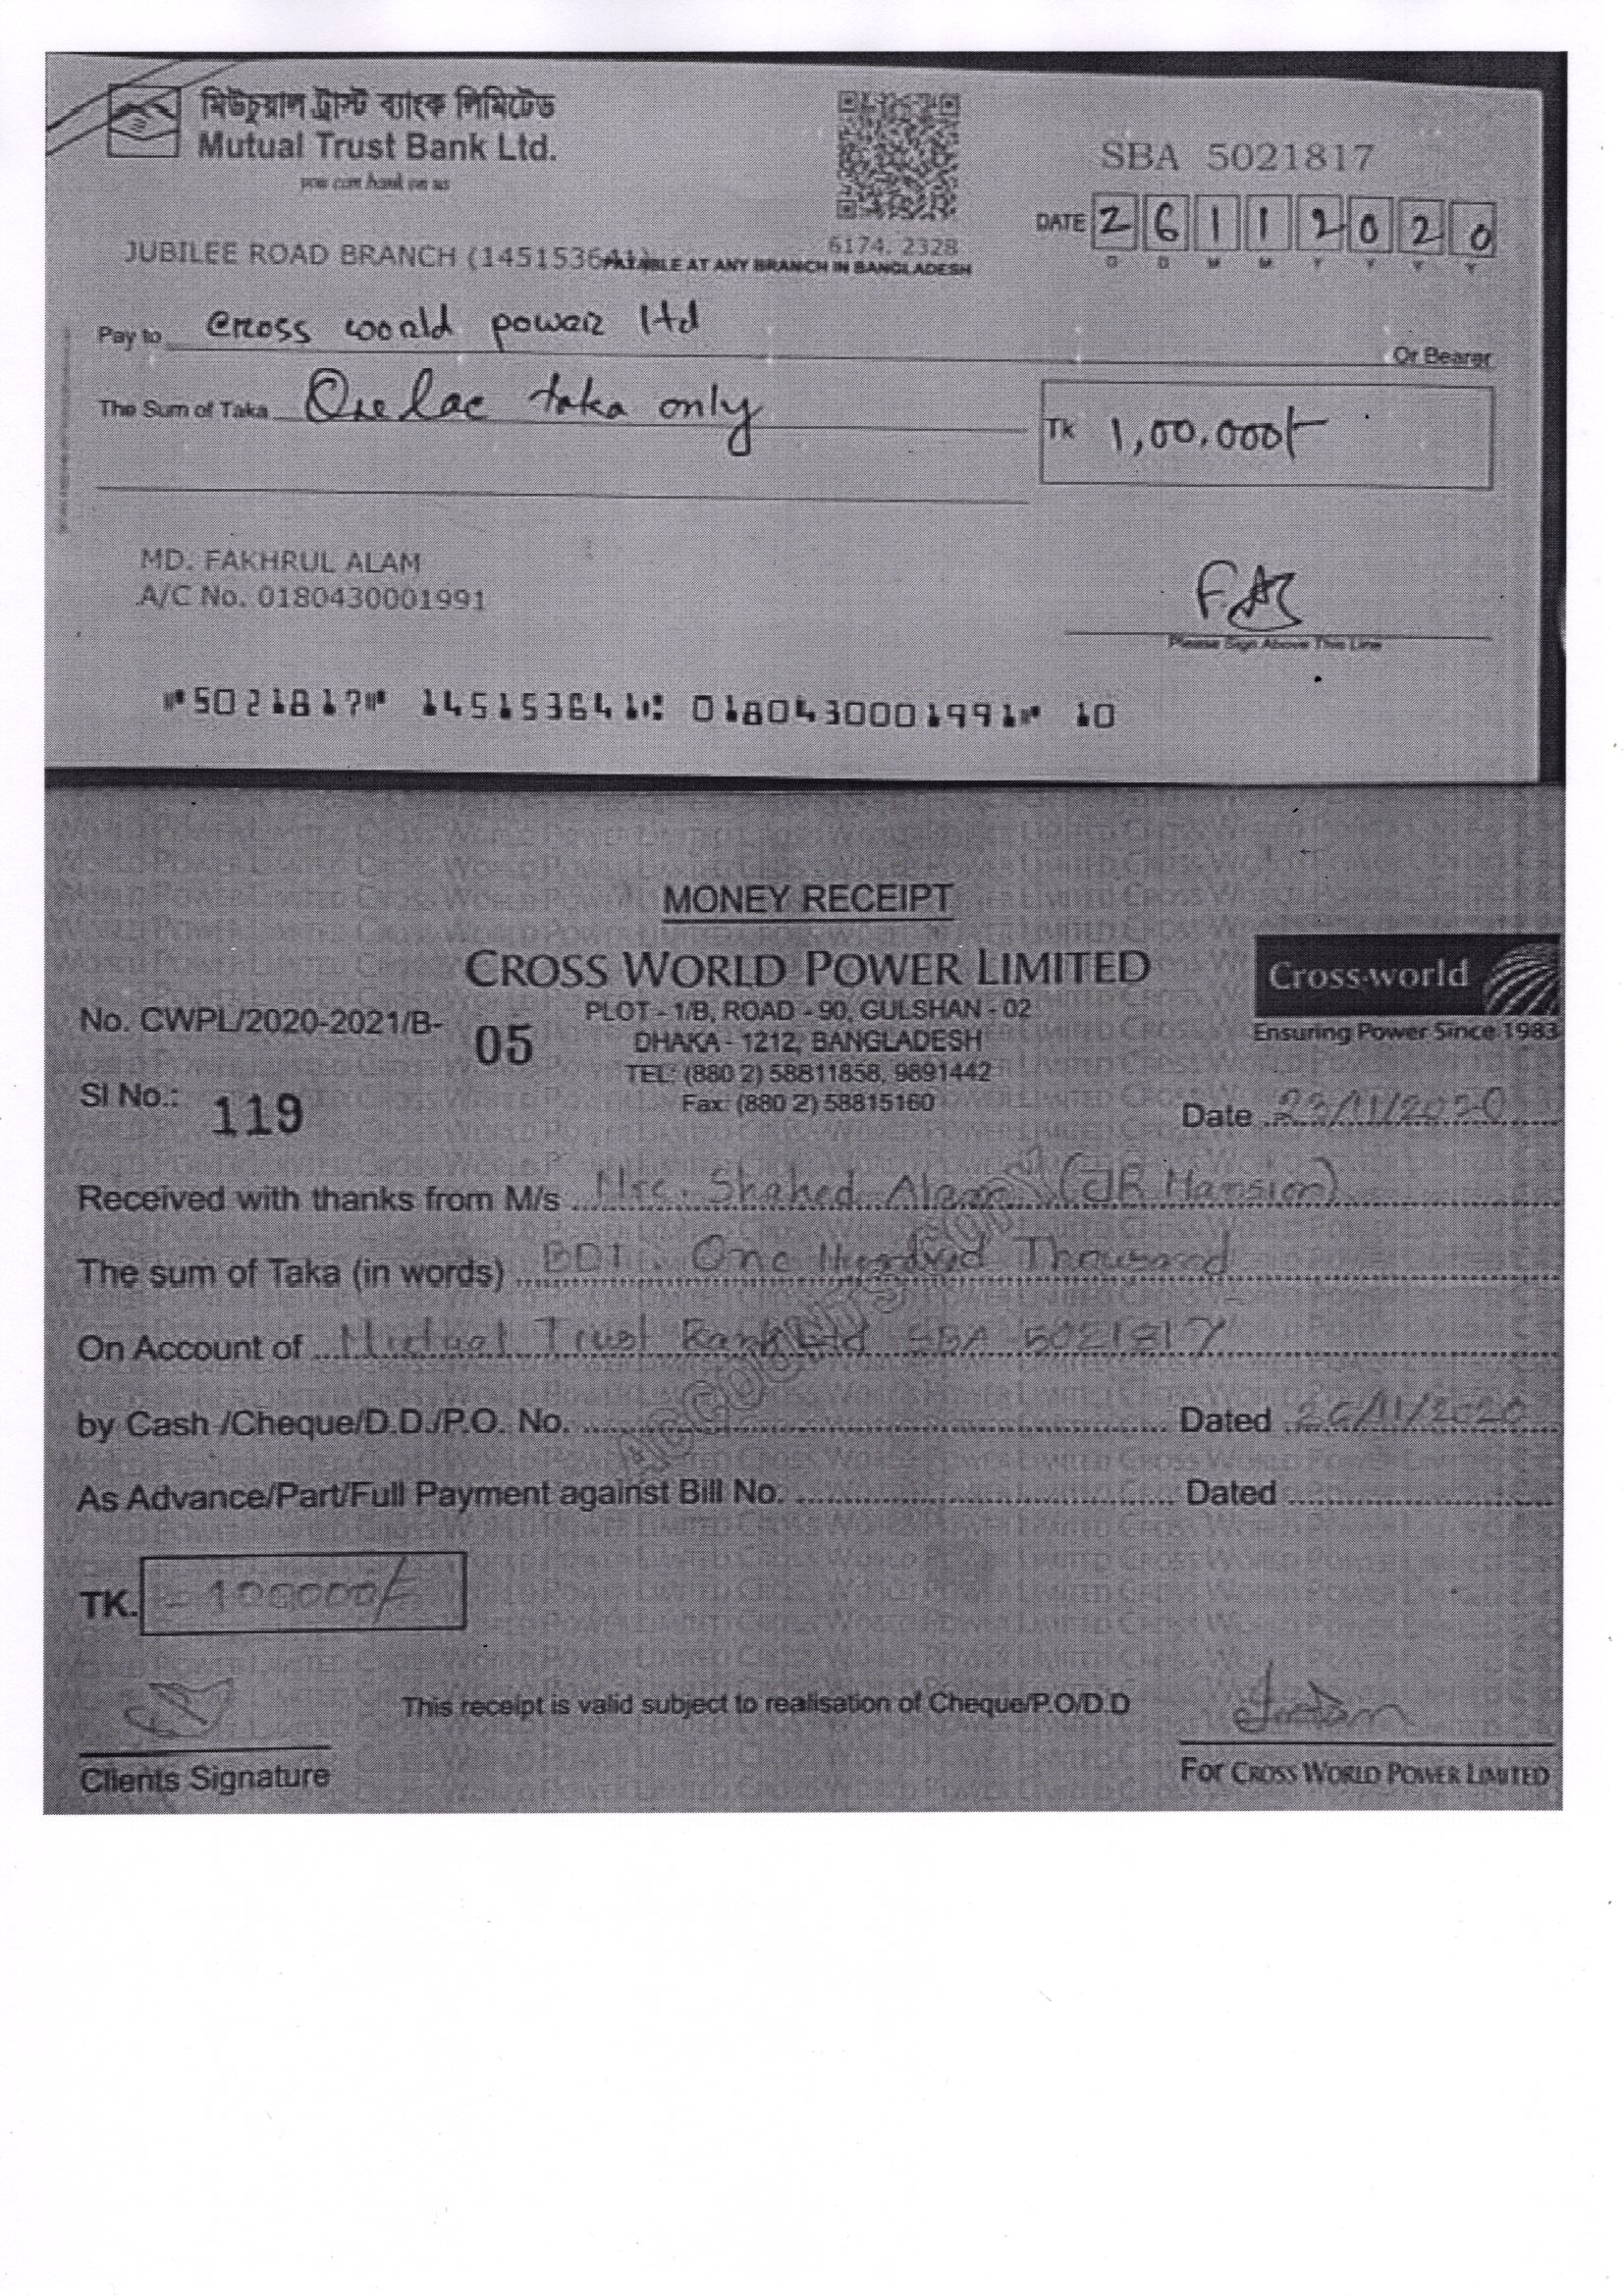 মিউচুয়াল ট্রাস্ট ব্যাংক লিমিটেড
Mutual Trust Bank Ltd.
you can bank on us
SBA 5021817
DATE 26112020
D D M M Y Y Y Y
6174. 2328
JUBILEE ROAD BRANCH (145153641)
PAYABLE AT ANY BRANCH IN BANGLADESH
Pay to Cross world power ltd
Or Bearer
The Sum of Taka One lac taka only
Tk 1,00,000/-
MD. FAKHRUL ALAM
A/C No. 0180430001991
Please Sign Above This Line
5021817 145153641 0180430001991 10
MONEY RECEIPT
CROSS WORLD POWER LIMITED
Cross-world
Ensuring Power Since 1983
PLOT - 1/B, ROAD - 90, GULSHAN - 02
No. CWPL/2020-2021/B- 05
DHAKA - 1212, BANGLADESH
TEL: (880 2) 58811858, 9891442
Fax: (880 2) 58815160
Sl No.: 119
Date 23/11/2020
Received with thanks from M/s Shahed Alam (JR Mansion)
The sum of Taka (in words) BDT. One Hundred Thousand
On Account of Mutual Trust Bank Ltd SBA 5021817
by Cash /Cheque/D.D./P.O. No. Dated 26/11/2020
As Advance/Part/Full Payment against Bill No. Dated
ACCOUNTS COPY
TK. 100000/-
This receipt is valid subject to realisation of Cheque/P.O/D.D
Clients Signature
For CROSS WORLD POWER LIMITED